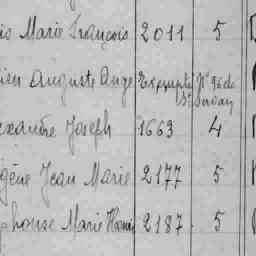 is Marie François 2011 5
Auguste Ange Exempté N° 96 de
St Servan
exandre Joseph 1663 4
gène Jean Marie 2177 5
phonse Marie 2187 5